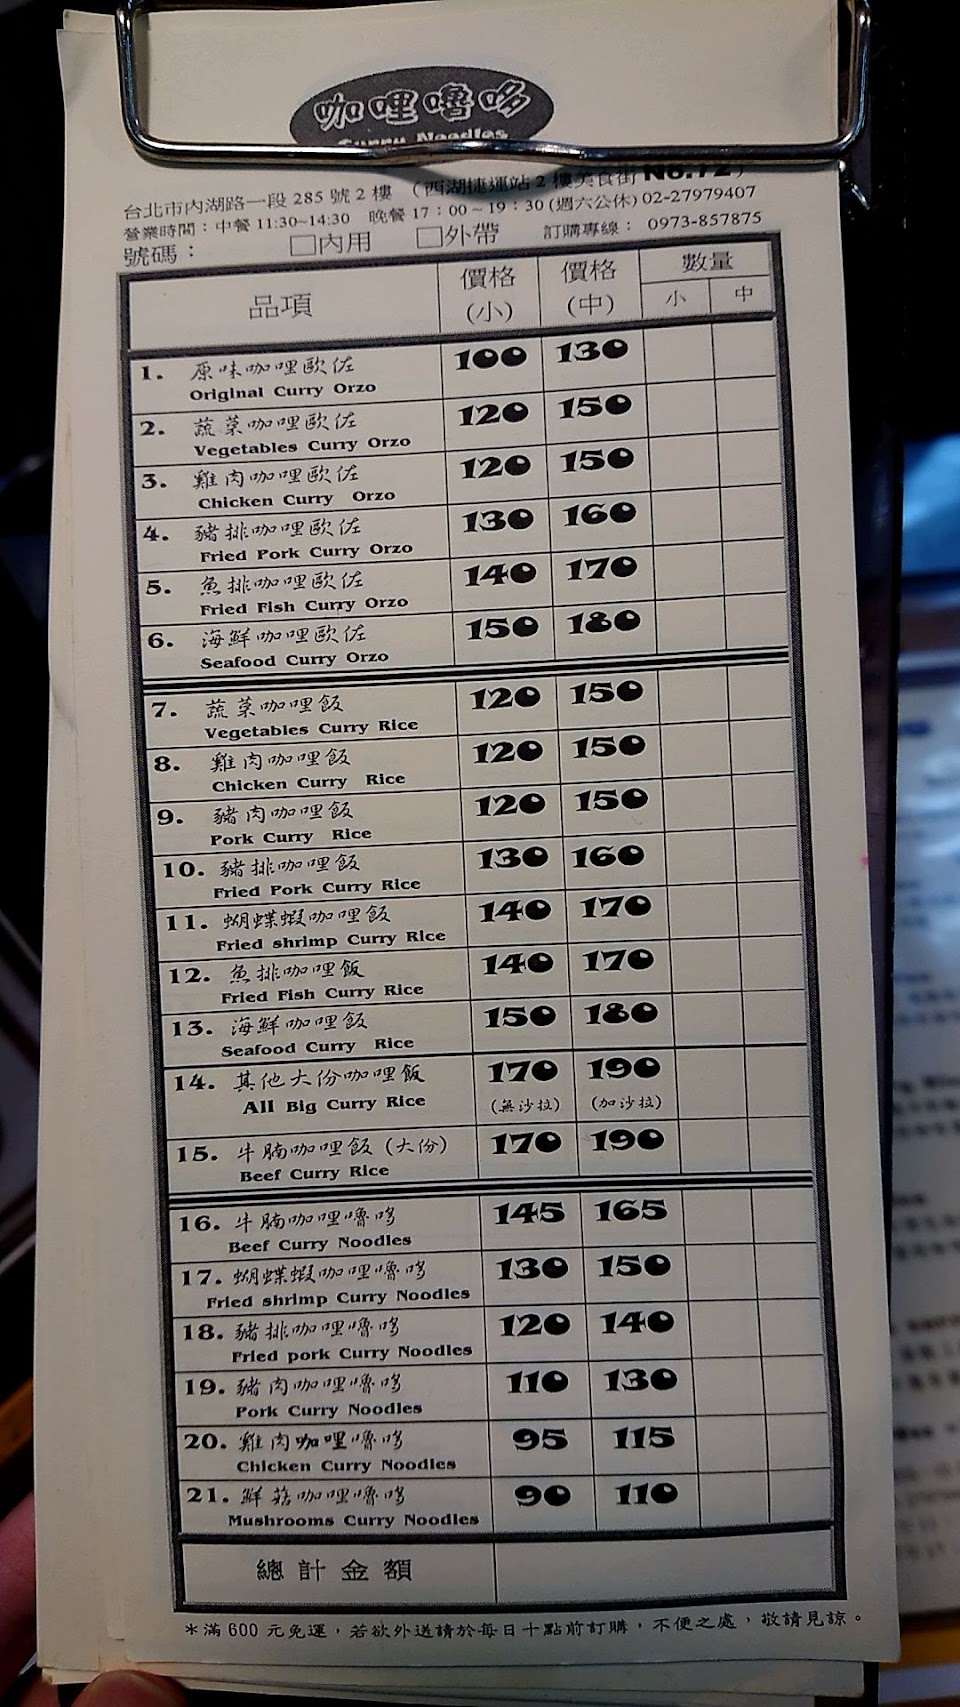 咖哩嚕哆
Curry Noodles
台北市內湖路一段 285 號 2 樓 （西湖捷運站 2 樓美食街 No.72）
營業時間：中餐 11:30~14:30 晚餐 17：00~19：30 (週六公休) 02-27979407
號碼： □內用 □外帶 訂購專線： 0973-857875
品項 價格(小) 價格(中) 數量 小 中
1. 原味咖哩歐佐 100 130
Original Curry Orzo
2. 蔬菜咖哩歐佐 120 150
Vegetables Curry Orzo
3. 雞肉咖哩歐佐 120 150
Chicken Curry Orzo
4. 豬排咖哩歐佐 130 160
Fried Pork Curry Orzo
5. 魚排咖哩歐佐 140 170
Fried Fish Curry Orzo
6. 海鮮咖哩歐佐 150 180
Seafood Curry Orzo
7. 蔬菜咖哩飯 120 150
Vegetables Curry Rice
8. 雞肉咖哩飯 120 150
Chicken Curry Rice
9. 豬肉咖哩飯 120 150
Pork Curry Rice
10. 豬排咖哩飯 130 160
Fried Pork Curry Rice
11. 蝴蝶蝦咖哩飯 140 170
Fried shrimp Curry Rice
12. 魚排咖哩飯 140 170
Fried Fish Curry Rice
13. 海鮮咖哩飯 150 180
Seafood Curry Rice
14. 其他大份咖哩飯 170 190
All Big Curry Rice (無沙拉) (加沙拉)
15. 牛腩咖哩飯 (大份) 170 190
Beef Curry Rice
16. 牛腩咖哩嚕哆 145 165
Beef Curry Noodles
17. 蝴蝶蝦咖哩嚕哆 130 150
Fried shrimp Curry Noodles
18. 豬排咖哩嚕哆 120 140
Fried pork Curry Noodles
19. 豬肉咖哩嚕哆 110 130
Pork Curry Noodles
20. 雞肉咖哩嚕哆 95 115
Chicken Curry Noodles
21. 鮮菇咖哩嚕哆 90 110
Mushrooms Curry Noodles
總計金額
＊滿 600 元免運，若欲外送請於每日十點前訂購，不便之處，敬請見諒。